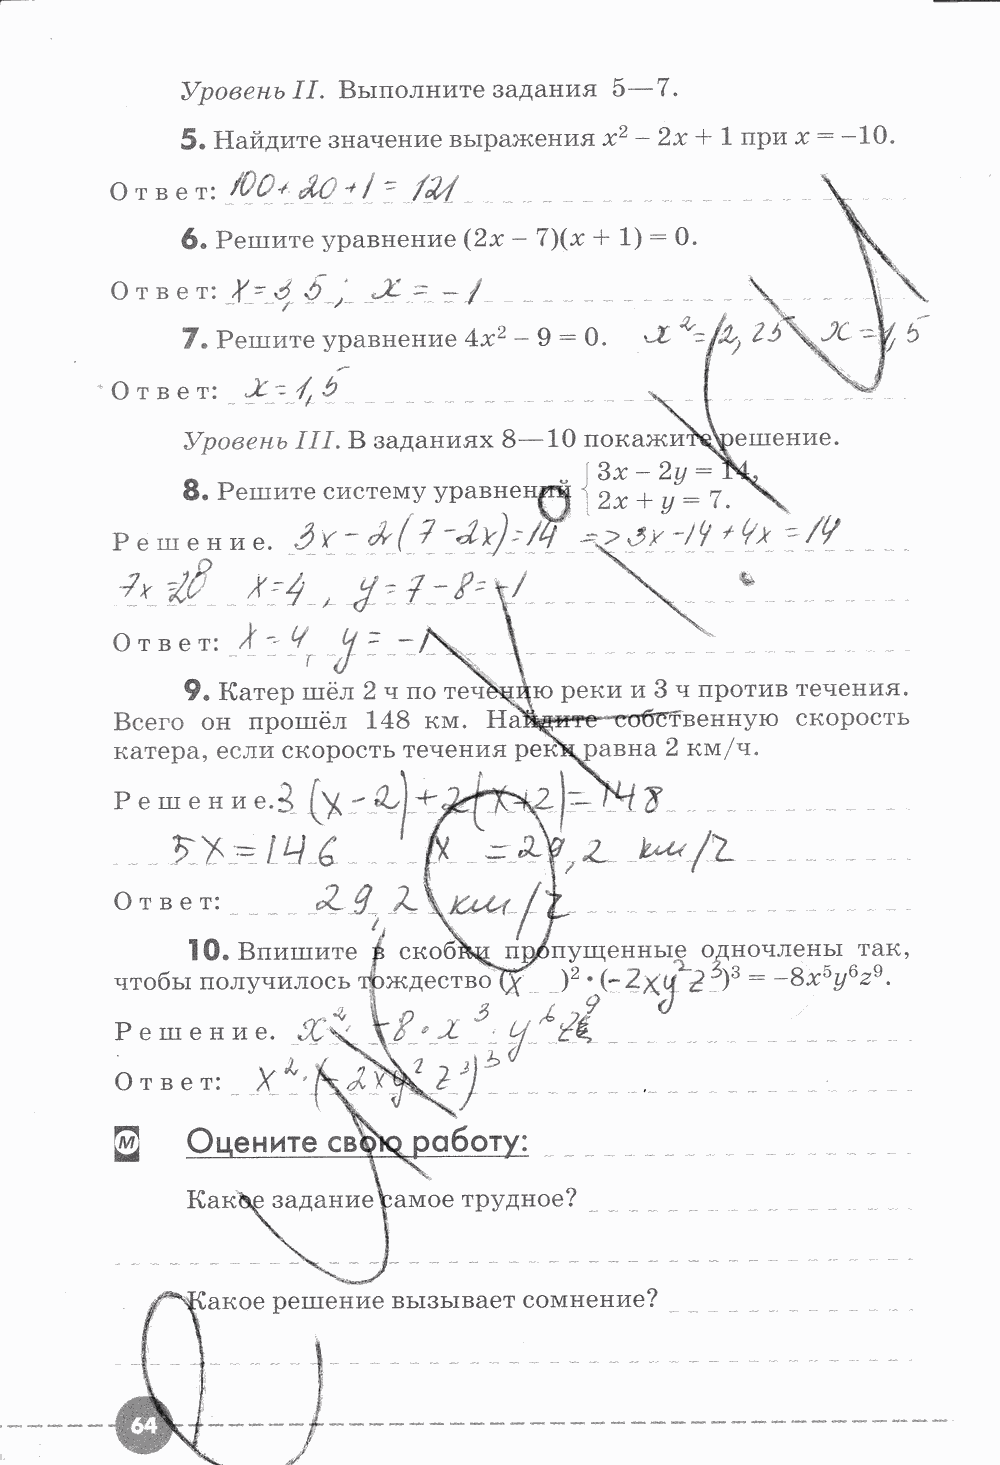 Уровень II. Выполните задания 5—7.
5. Найдите значение выражения x² − 2x + 1 при x = −10.
Ответ: 100 + 20 + 1 = 121
6. Решите уравнение (2x − 7)(x + 1) = 0.
Ответ: x = 3,5; x = −1
7. Решите уравнение 4x² − 9 = 0. x² = 2,25 x = 1,5
Ответ: x = 1,5
Уровень III. В заданиях 8—10 покажите решение.
8. Решите систему уравнений { 3x − 2y = 14,
2x + y = 7.
Решение. 3x − 2(7 − 2x) = 14 => 3x − 14 + 4x = 14
7x = 28 x = 4, y = 7 − 8 = −1
Ответ: x = 4, y = −1
9. Катер шёл 2 ч по течению реки и 3 ч против течения.
Всего он прошёл 148 км. Найдите собственную скорость
катера, если скорость течения реки равна 2 км/ч.
Решение. 3(x − 2) + 2(x + 2) = 148
5x = 146 x = 29,2 км/ч
Ответ: 29,2 км/ч
10. Впишите в скобки пропущенные одночлены так,
чтобы получилось тождество (x )² · (−2xy²z³)³ = −8x⁵y⁶z⁹.
Решение. x² · −8 · x³ · y⁶ z⁹
Ответ: x² · (−2xy²z³)³
М Оцените свою работу:
Какое задание самое трудное?
Какое решение вызывает сомнение?
64